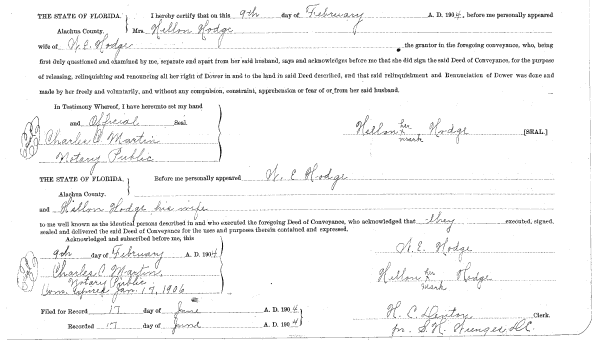 THE STATE OF FLORIDA. I hereby certify that on this 9th day of February A. D. 1904, before me personally appeared
Alachua County. Mrs Hellon Hodge
wife of W. E. Hodge the grantor in the foregoing conveyance, who, being
first duly questioned and examined by me, separate and apart from her said husband, says and acknowledges before me that she did sign the said Deed of Conveyance, for the purpose
of releasing, relinquishing and renouncing all her right of Dower in and to the land in said Deed described, and that said relinquishment and Renunciation of Dower was done and
made by her freely and voluntarily, and without any compulsion, constraint, apprehension or fear of or from her said husband.
In Testimony Whereof, I have hereunto set my hand
and Official Seal
Charles C. Martin
Notary Public
Hellon her x mark Hodge [SEAL.]
THE STATE OF FLORIDA. Before me personally appeared W. E. Hodge
Alachua County.
and Hellon Hodge his wife
to me well known as the identical persons described in and who executed the foregoing Deed of Conveyance, who acknowledged that they executed, signed,
sealed and delivered the said Deed of Conveyance for the uses and purposes therein contained and expressed.
Acknowledged and subscribed before me, this
9th day of February A. D. 1904
Charles C. Martin
Notary Public
Com. expires Jan. 17, 1906
W. E. Hodge
Hellon her x mark Hodge
Filed for Record 17 day of June A. D. 1904
Recorded 17 day of June A. D. 1904
H. C. Denton Clerk.
pr. S. H. D.C.